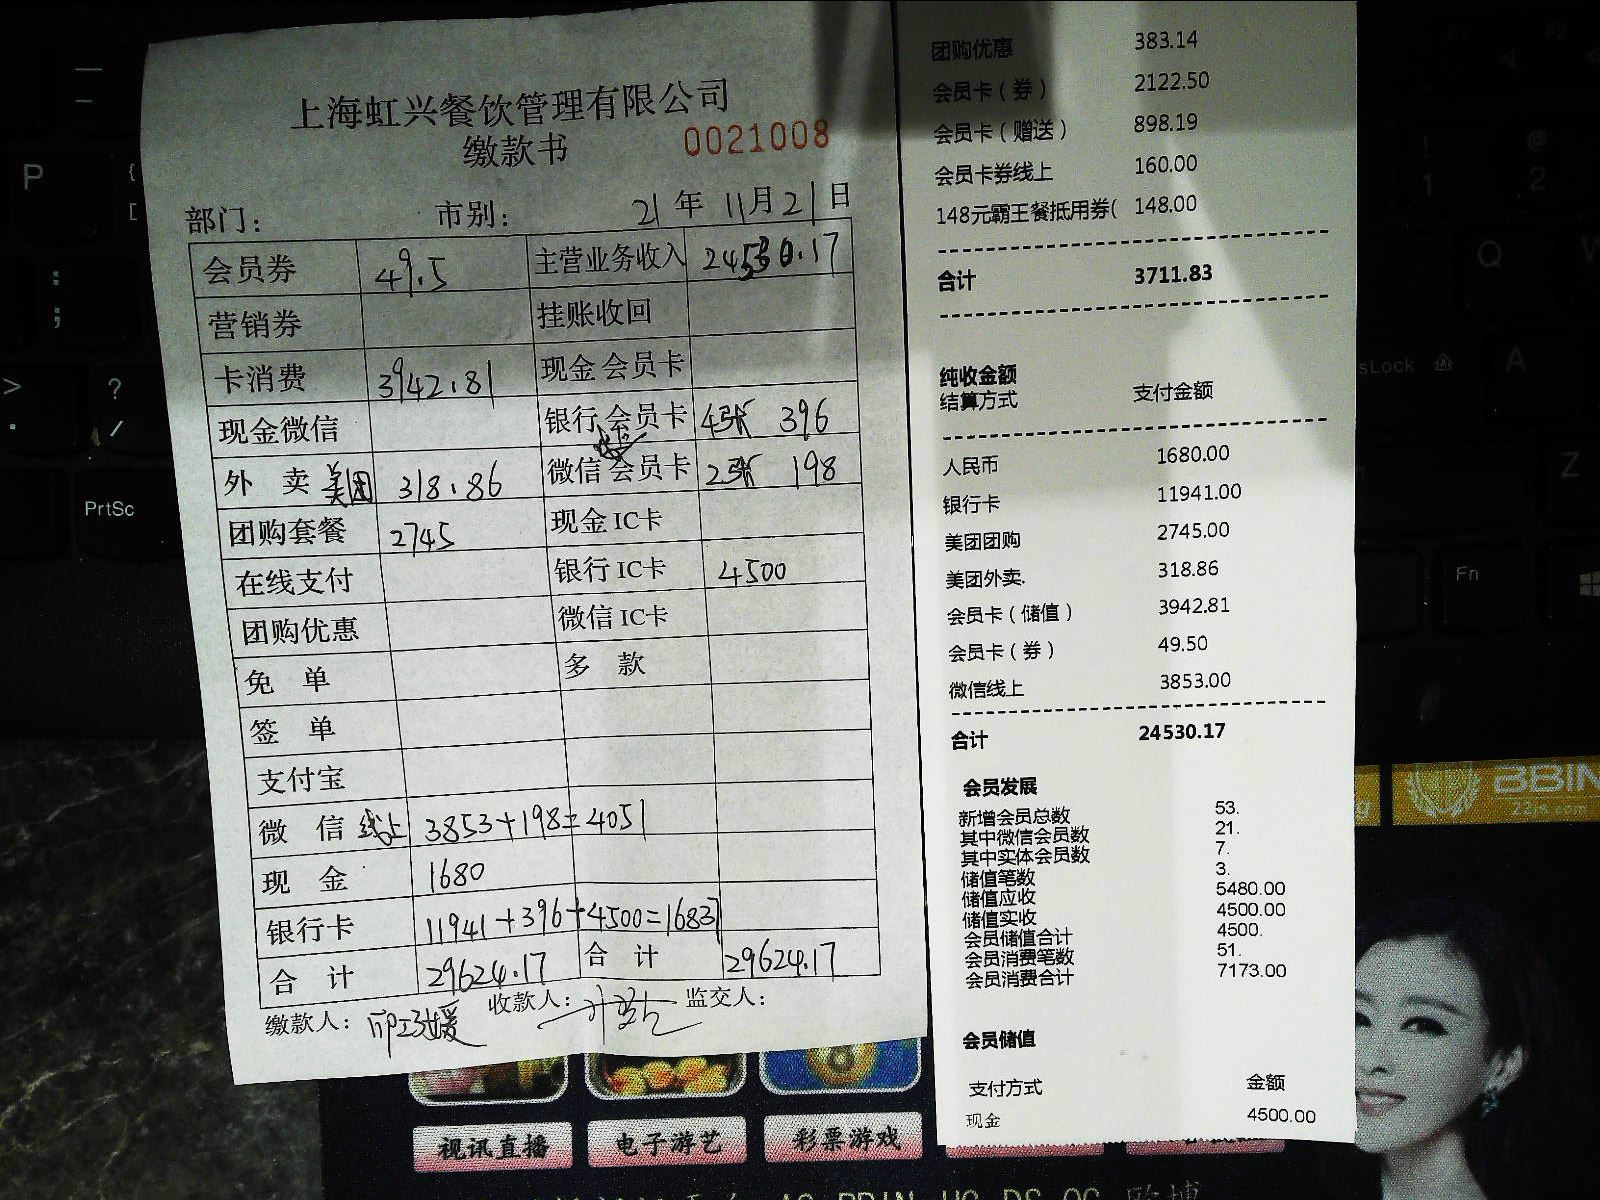 上海虹兴餐饮管理有限公司
缴款书 0021008
部门： 市别： 21年11月21日
会员券 49.5 主营业务收入 24530.17
营销券 挂账收回
卡消费 3942.81 现金会员卡
现金微信 银行会员卡 4张 396
外 卖 美团 318.86 微信会员卡 2张 198
团购套餐 2745 现金IC卡
在线支付 银行IC卡 4500
团购优惠 微信IC卡
免 单 多 款
签 单
支付宝
微 信 线上 3853+198=4051
现 金 1680
银行卡 11941+396+4500=16837
合 计 29624.17 合 计 29624.17
缴款人： 收款人： 监交人：
团购优惠 383.14
会员卡（券） 2122.50
会员卡（赠送） 898.19
会员卡券线上 160.00
148元霸王餐抵用券( 148.00
合计 3711.83
纯收金额
结算方式 支付金额
人民币 1680.00
银行卡 11941.00
美团团购 2745.00
美团外卖. 318.86
会员卡（储值） 3942.81
会员卡（券） 49.50
微信线上 3853.00
合计 24530.17
会员发展
新增会员总数 53.
其中微信会员数 21.
其中实体会员数 7.
储值笔数 3.
储值应收 5480.00
储值实收 4500.00
会员储值合计 4500.
会员消费笔数 51.
会员消费合计 7173.00
会员储值
支付方式 金额
现金 4500.00
P
PrtSc
Q
A
Z
Fn
sLock
BBIN
视讯直播 电子游艺 彩票游戏